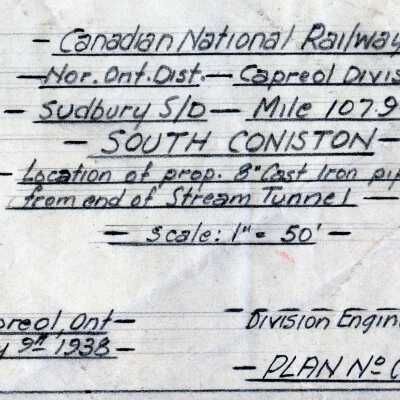 - Canadian National Railway
- Nor. Ont. Dist. - Capreol Divis
- Sudbury S/D - Mile 107.9
- SOUTH CONISTON -
- Location of prop. 8" Cast Iron pip
from end of Stream Tunnel -
- Scale: 1" = 50' -
preol, Ont -
y 9th 1938 -
- Division Engin
- PLAN No C